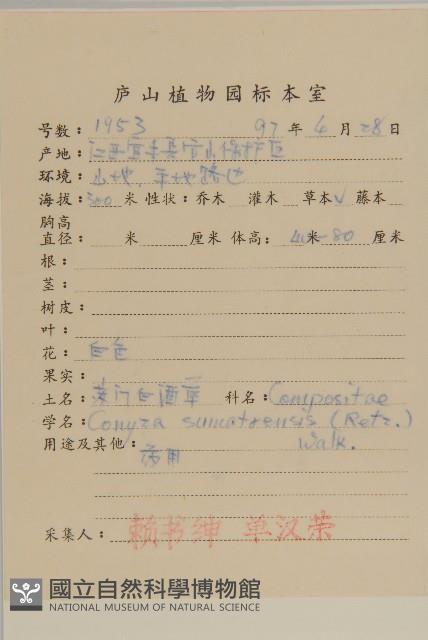 庐山植物园标本室
号数: 1953 97 年 4 月 28 日
产地: 江西宜丰县官山保护区
环境: 山地, 平地路边
海拔: 300 米 性状: 乔木 灌木 草本√ 藤本
胸高
直径: 米 厘米 体高: 40米-80 厘米
根:
茎:
树皮:
叶:
花: 白色
果实:
土名: 苏门白酒草 科名: Compositae
学名: Conyza sumatrensis (Retz.)
Walk.
用途及其他:
药用
采集人: 赖书绅 单汉荣
國立自然科學博物館
NATIONAL MUSEUM OF NATURAL SCIENCE